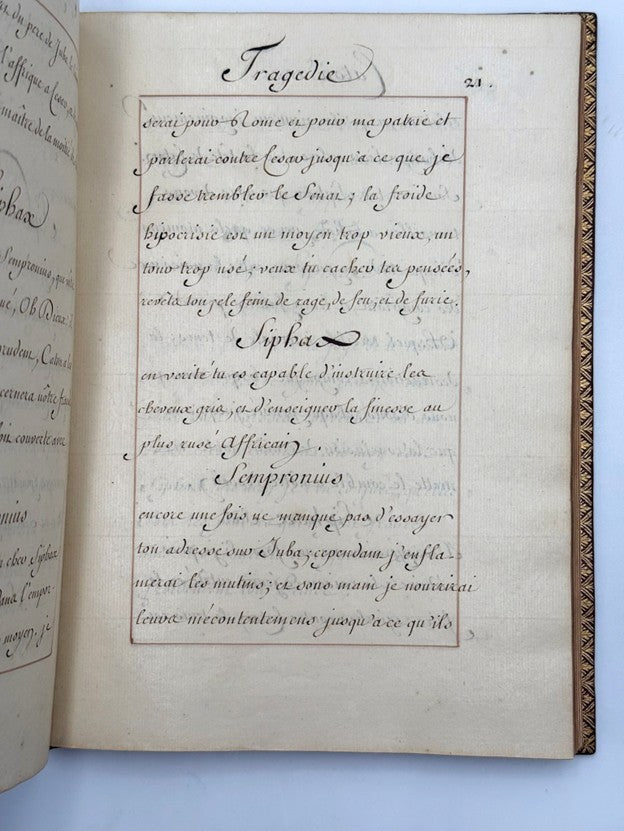 er du pere de Juba
l'affrique a Cesar,
maître de la moitié
Siphax
Sempronius, que
Oh Dieux!
prudent, Caton a
cernera nôtre
couverte avec
nius
cher Siphax
dans l'empor-
moyen. je
Tragedie 21.
serai pour Rome et pour ma patrie et
parlerai contre Cesar jusqu'a ce que je
fasse trembler le Senat; la froide
hipocrisie est un moyen trop vieux, un
tour trop usé; veux tu cacher tes pensées,
revêts ton zele feint de rage, de feu, et de furie.
Siphax
en verité tu es capable d'instruire les
cheveux gris, et d'enseigner la finesse au
plus rusé Affricain.
Sempronius
encore une fois ne manque pas d'essayer
ton adresse sur Juba; cependant j'enfla
merai les mutins; et sous main je nourrirai
leurs mécontentemens jusqu'a ce qu'ils